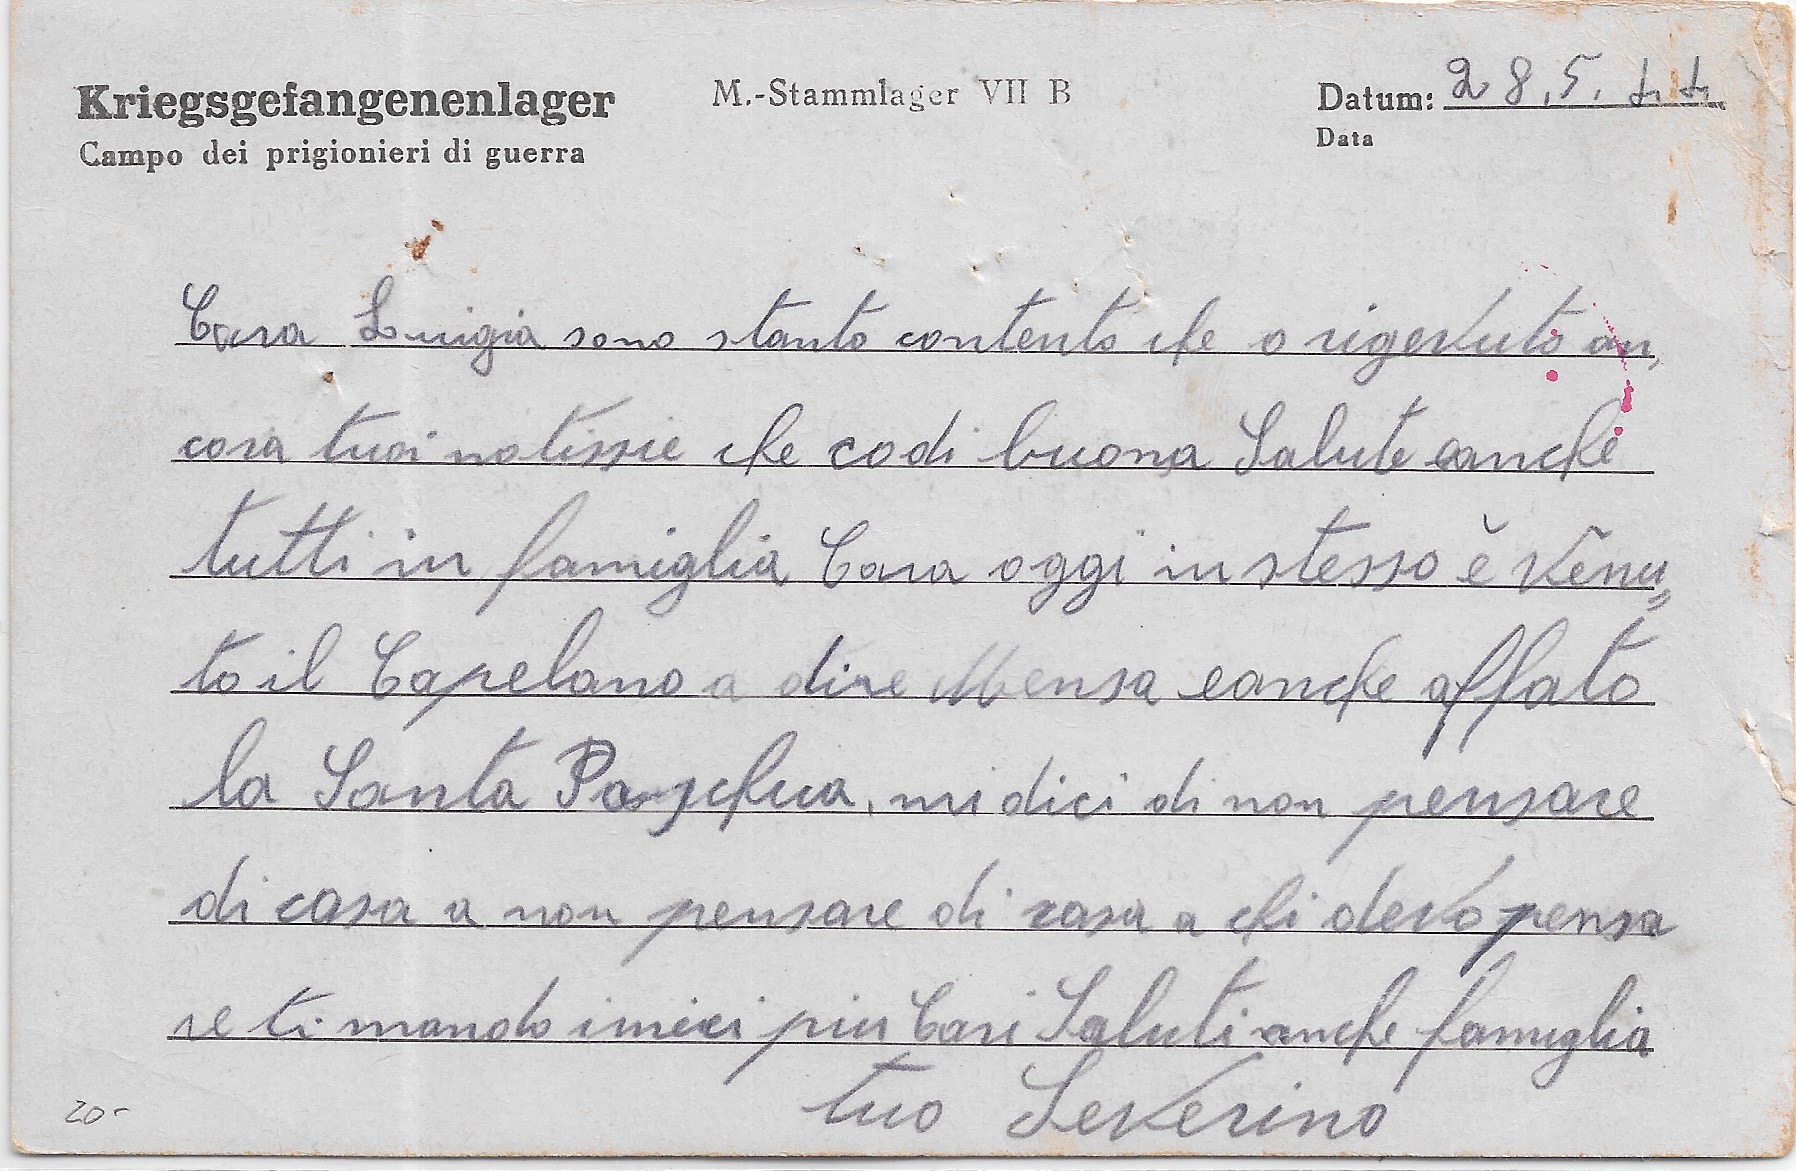 Kriegsgefangenenlager M.-Stammlager VII B Datum: 28.5.44
Campo dei prigionieri di guerra Data
Cara Luigia sono stanto contento che o rigevuto an,
cora tuoi notissie che codi buona Salute eanche
tutti in famiglia Cara oggi in stesso è venu=
to il Capelano a dire Mensa eanche affato
la Santa Paschua, mi dici di non pensare
di casa a non pensare di casa a chi devo pensa
re ti mando i miei piu Cari Saluti anche famiglia
tuo Severino
20-